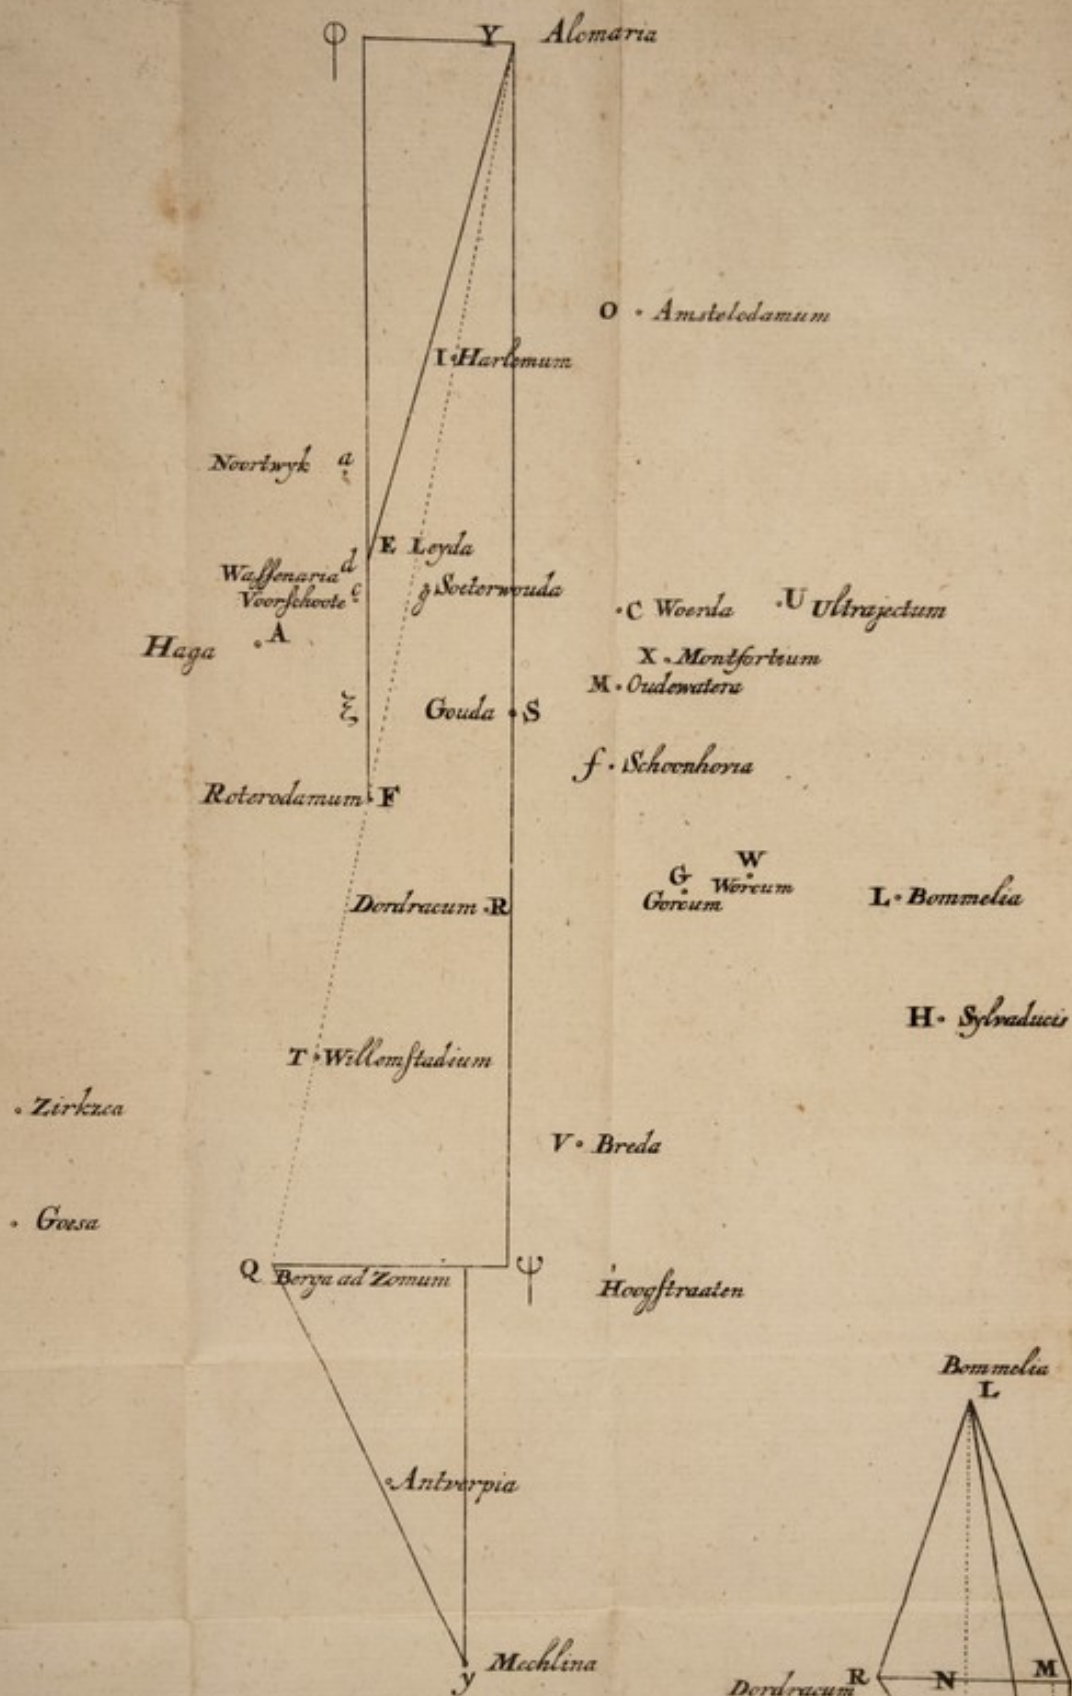 Φ Y Alcmaria
O Amstelodamum
I Harlemum
Noortwyk a
E Leyda
d
Waſſenaria
g Soeterwouda
Voorſchote c
C Woerda
U Ultrajectum
A
Haga
X Montfortium
M Oudewatera
ξ
Gouda S
f Schoonhovia
Roterodamum F
W
G
Worcum
Gorcum
L Bommelia
Dordracum R
H Sylvaducis
T Willemſtadium
Zirkzea
V Breda
Goesa
Q Berga ad Zomum ψ
Hoogſtraaten
Bommelia
L
Antverpia
y Mechlina
Dordracum R N M